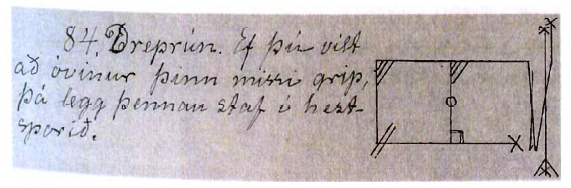 84. Dreprún. Ef þú vilt
að óvinur þinn missi grip,
þá legg þennan staf i hest-
sporið.